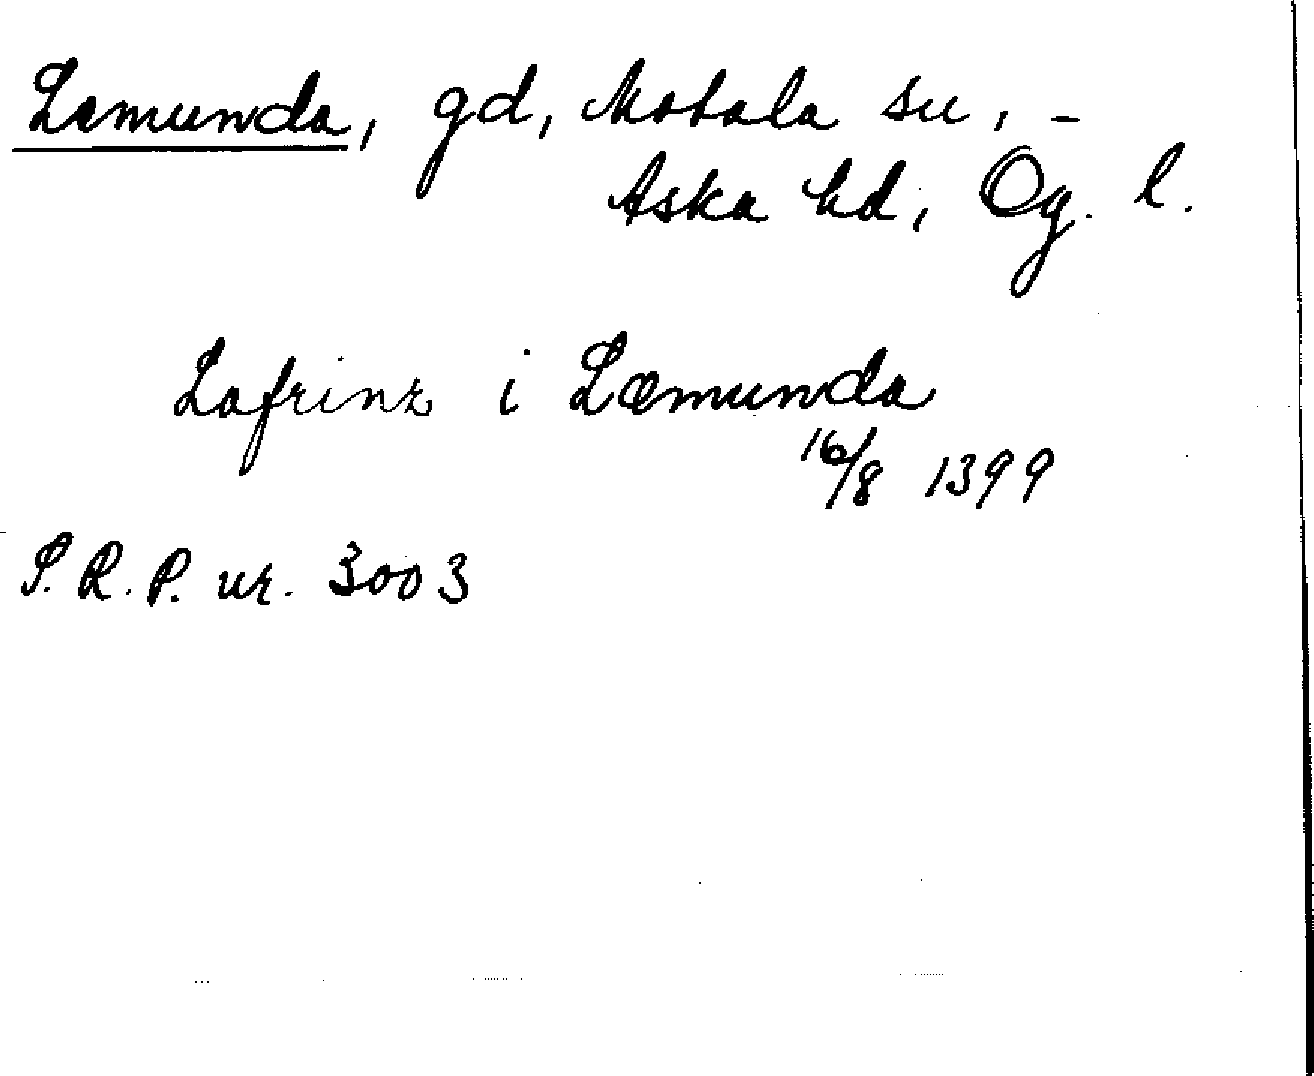 Lemunda, gd, Motala sn, -
Aska hd, Ög. l.
Lafrinz i Læmunda
16/8 1399
S.R.P. nr. 3003